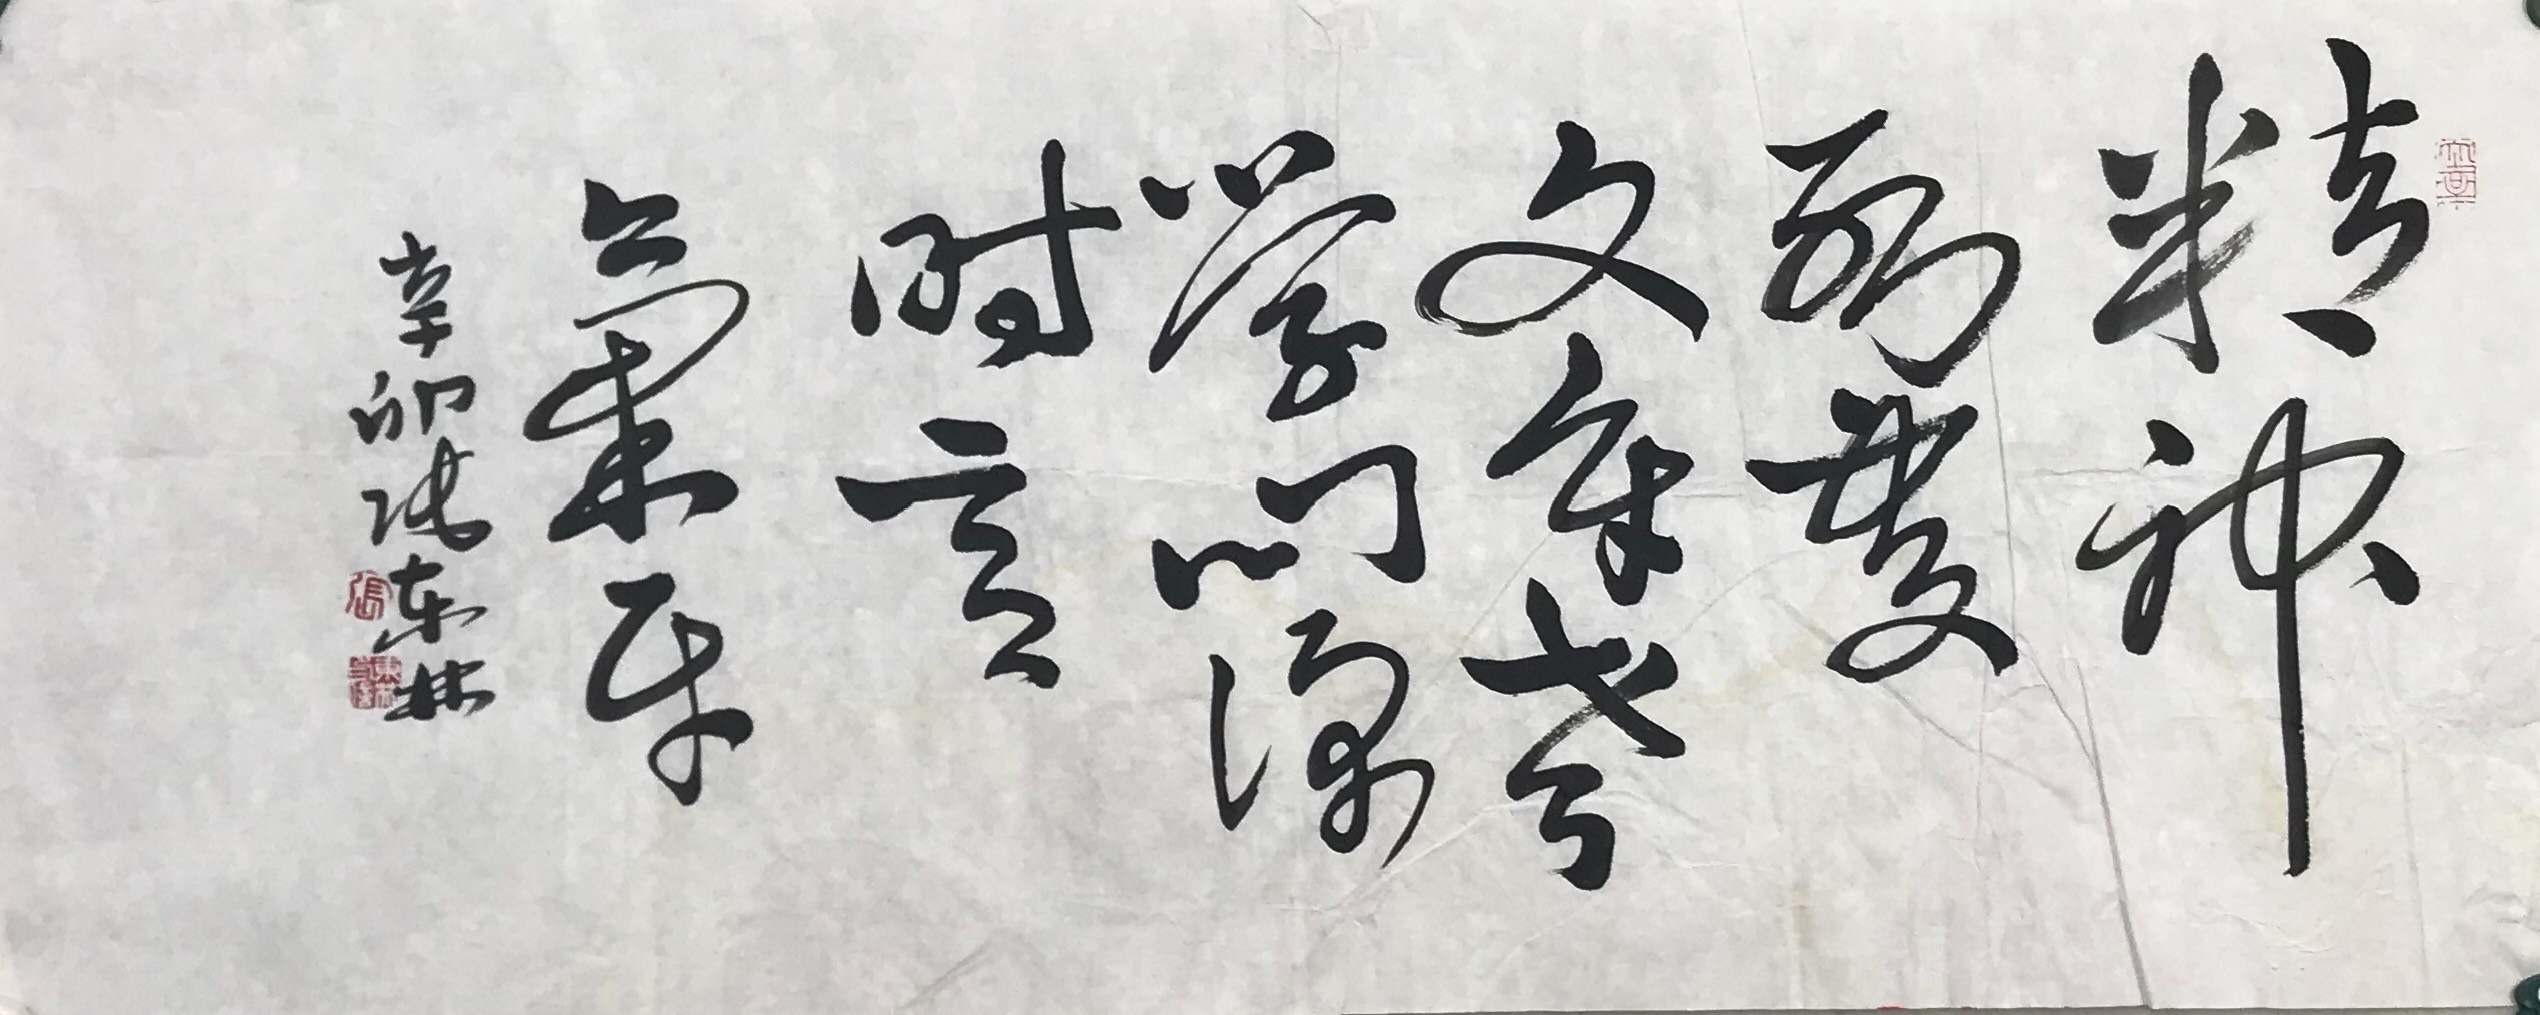 精神
到處
文章老
學問深
時意
氣平
辛卯張東林